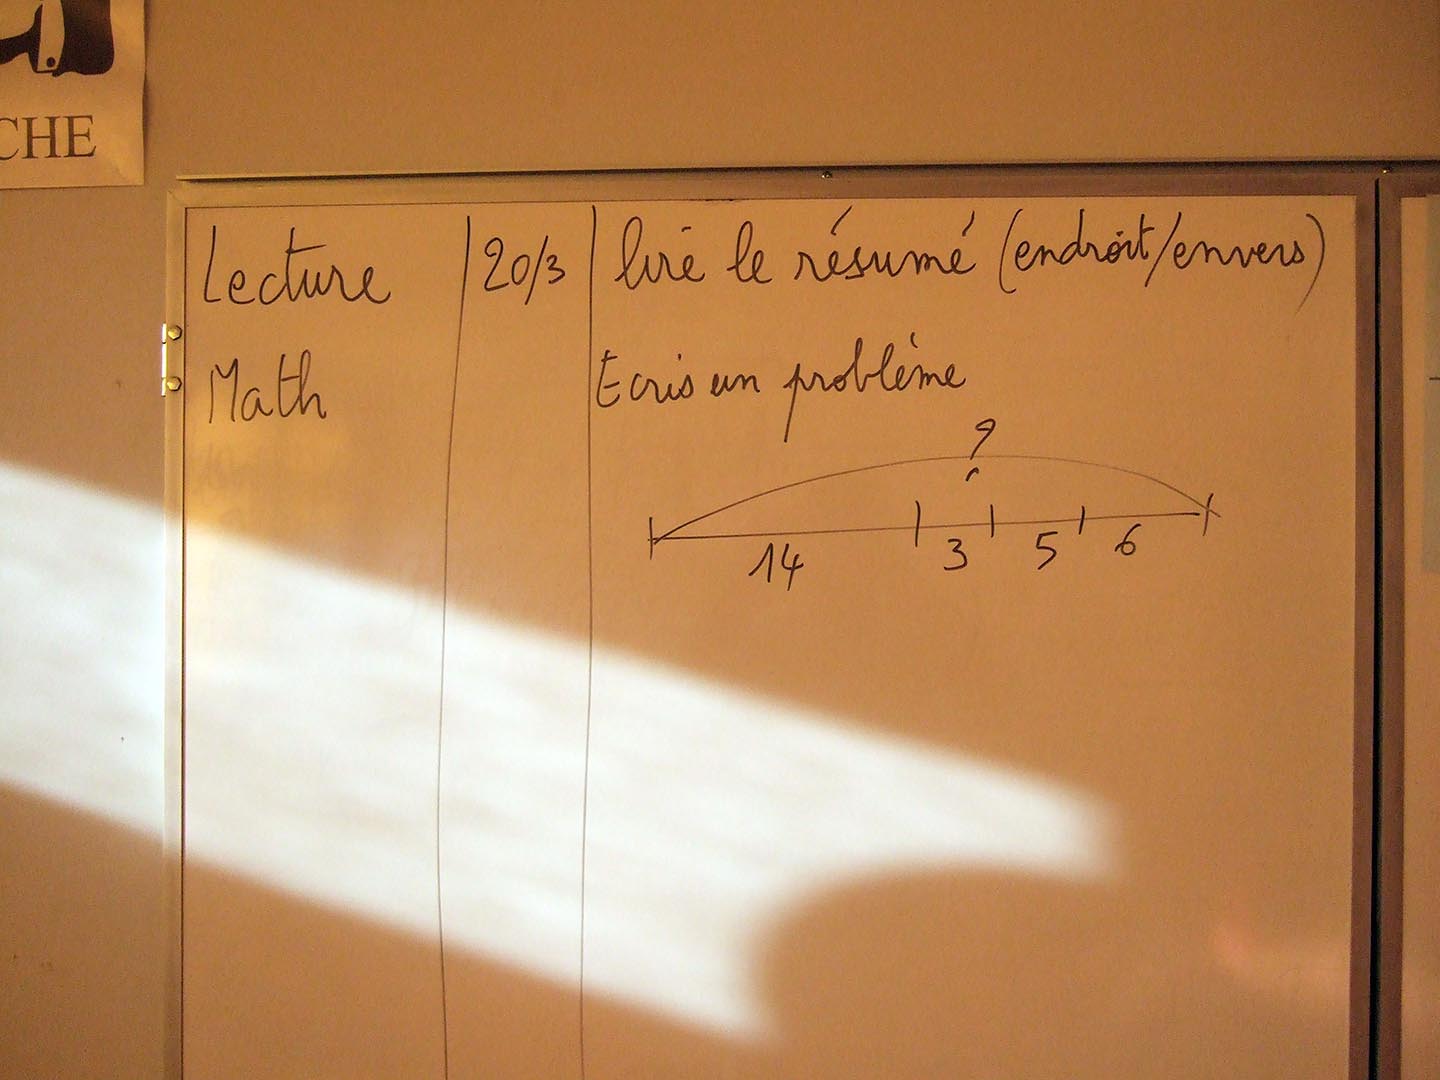 CHE
Lecture 20/3 lire le résumé (endroit/envers)
Math Ecris un problème
?
14 3 5 6